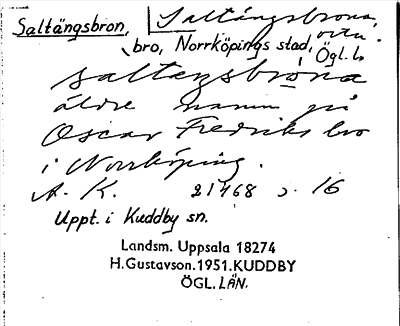 Saltängsbron, Saltängsbrona,
bro, Norrköpings stad, Ögl. l.
saltengsbrona
äldre namn på
Oscar Fredriks bro
i Norrköping.
A. K. 21468 s. 16
Uppt. i Kuddby sn.
Landsm. Uppsala 18274
H.Gustavson.1951.KUDDBY
ÖGL. LÄN.